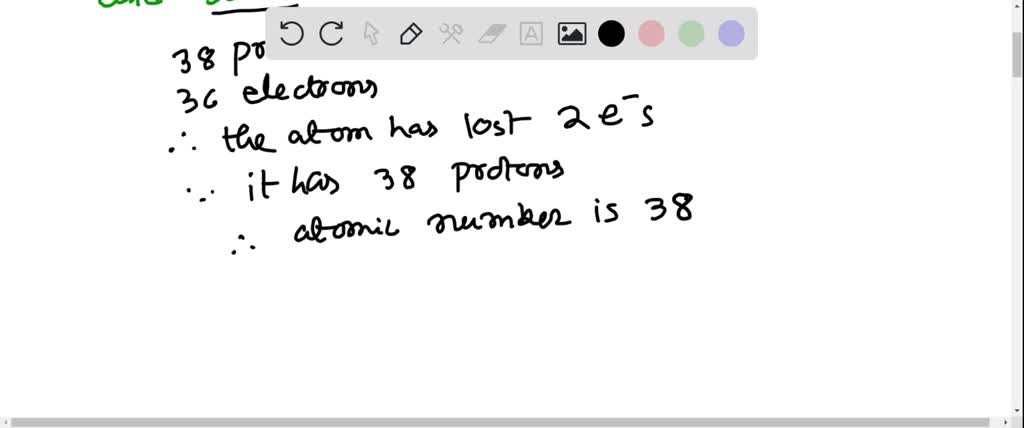 38 pr
36 electrons
∴ the atom has lost 2e⁻s
∵ it has 38 protons
∴ atomic number is 38